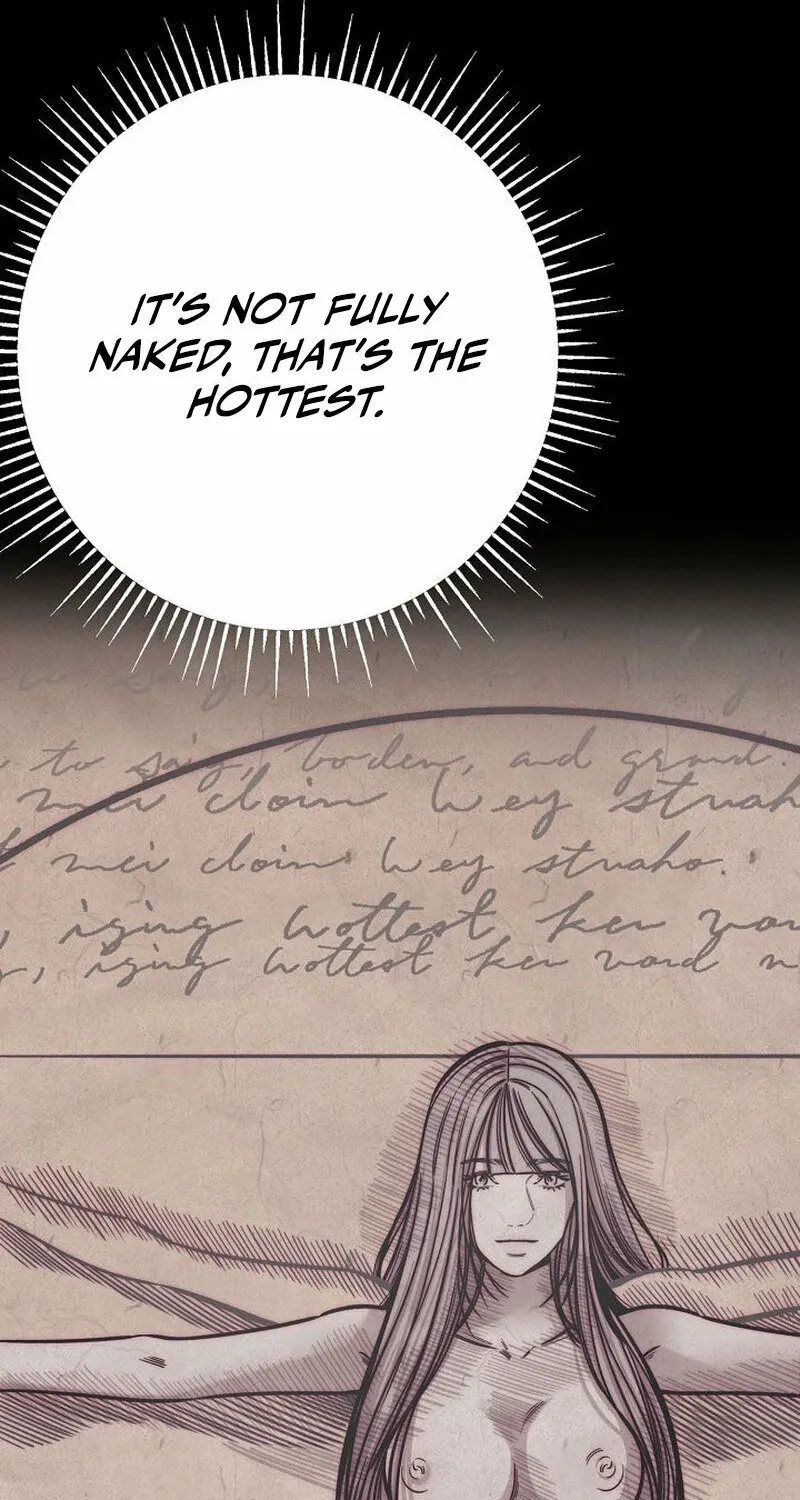 IT'S NOT FULLY
NAKED, THAT'S THE
HOTTEST.
to say, boden, and grand.
mei cloin wey struah
mei cloin wey struaho.
, iging hottest ken vord
, iging hottest ken vord n